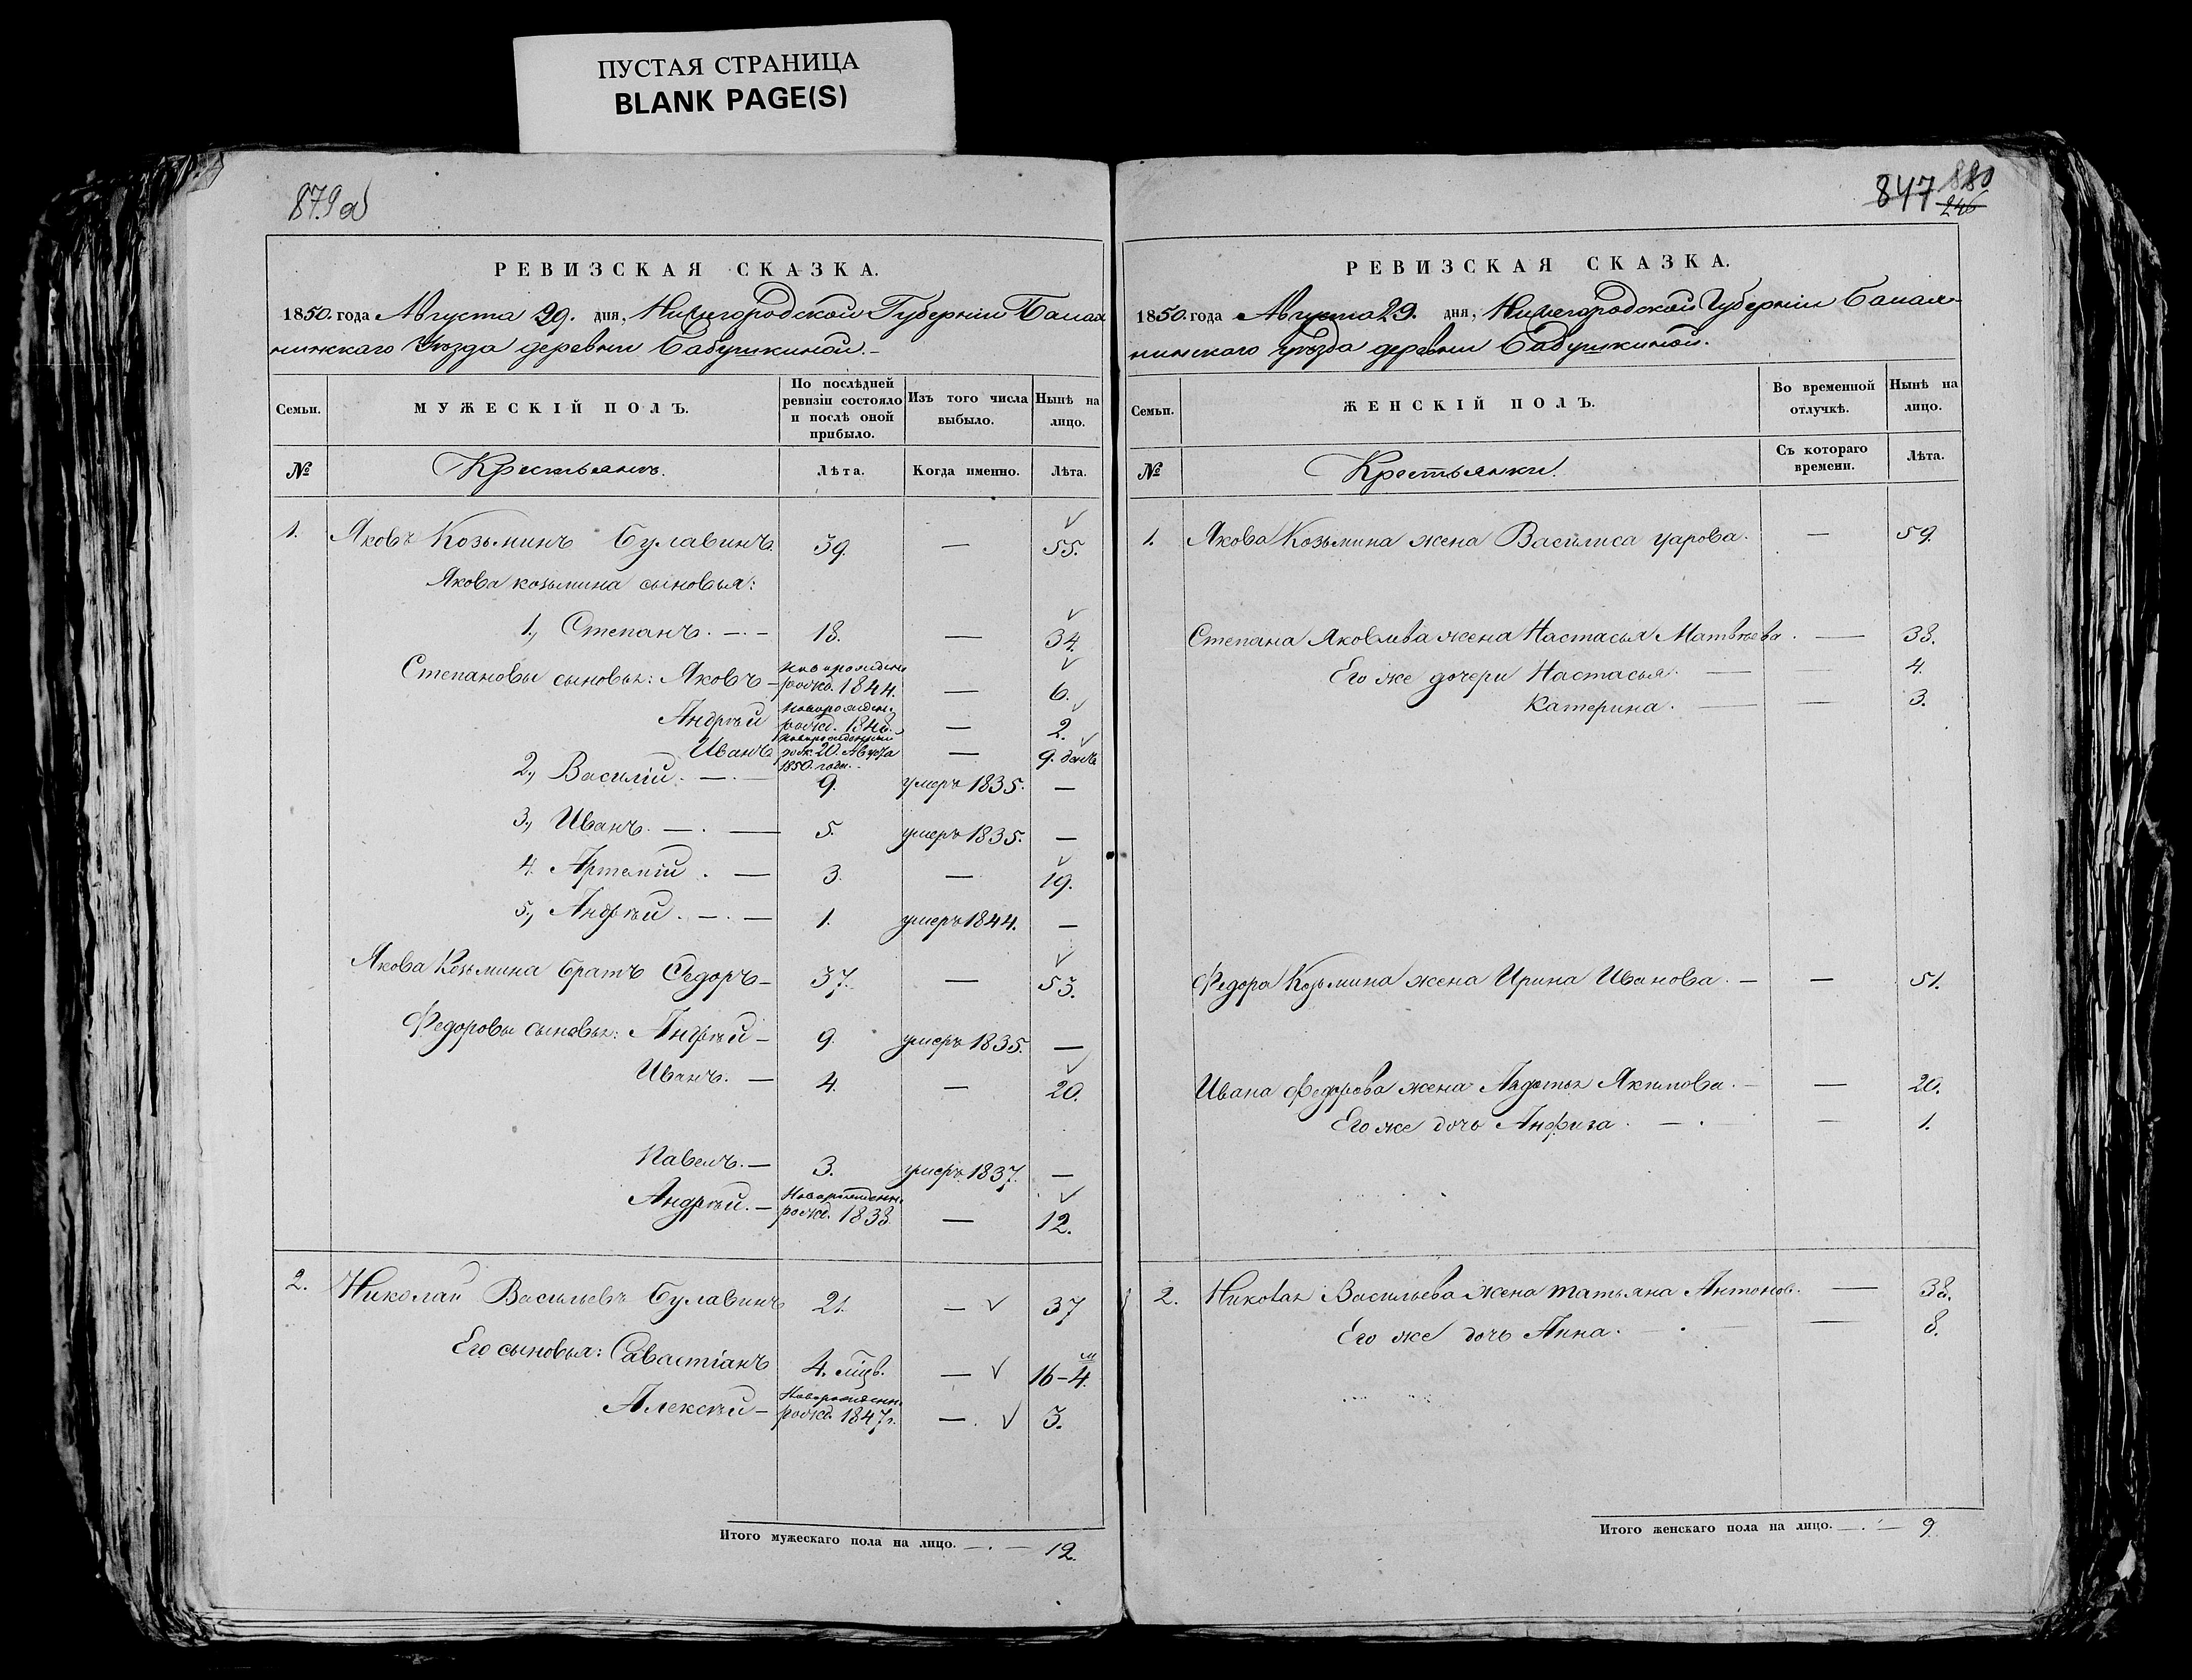 ПУСТАЯ СТРАНИЦА
BLANK PAGE(S)
879 об
РЕВИЗСКАЯ СКАЗКА.
1850. года Августа 29. дня, Нижегородской Губерніи Балах
нинскаго Уѣзда деревни Бабушкиной.
Семьи.
МУЖЕСКІЙ ПОЛЪ.
По послѣдней ревизіи состояло и послѣ оной прибыло.
Изъ того числа выбыло.
Нынѣ на лицо.
№
Крестьянъ.
Лѣта.
Когда именно.
Лѣта.
1. Яковъ Козьминъ Булавинъ 39. — 55.
Якова козьмина сыновья:
1., Степанъ. — 18. — 34.
Степановы сыновья: Яковъ — новорожден. рожд. 1844. — 6.
Андрѣй новорожден. рожд. 1848. — 2.
Иванъ новорожденный рожд. 20. Августа 1850. года. — 9. дней
2., Василій. — 9. умеръ 1835. —
3., Иванъ. — 5. умеръ 1835. —
4. Артемій. — 3. — 19.
5., Андрѣй. — 1. умеръ 1844. —
Якова Козьмина братъ Ѳедоръ — 37. — 53.
Федоровы сыновья: Андрѣй — 9. умеръ 1835. —
Иванъ. — 4. — 20.
Павелъ. — 3. умеръ 1837. —
Андрѣй. — Новорожденн. рожд. 1838. — 12.
2. Николай Васильевъ Булавинъ 21. — 37
Его сыновья: Савастіанъ 4. мѣс. — 16-4. м
Алексѣй — Новорожденн. рожд. 1847 г. — 3.
Итого мужескаго пола на лицо. — 12.
847 880
246
РЕВИЗСКАЯ СКАЗКА.
1850. года Августа 29. дня, Нижегородской Губерніи Балах-
нинскаго уѣзда деревни Бабушкиной.
Семьи.
ЖЕНСКІЙ ПОЛЪ.
Во временной отлучкѣ.
Нынѣ на лицо.
№
Крестьянки.
Съ котораго времени.
Лѣта.
1. Якова Козьмина жена Василиса Уарова. — 59.
Степана Яковлева жена Настасья Матвѣева. — 38.
Его же дочери Настасья. — 4.
Катерина. — 3.
Федора Козьмина жена Ирина Иванова. — 51.
Ивана Федорова жена Авдотья Якимова. — 20.
Его же дочь Анфиза. — 1.
2. Николая Васильева жена Татьяна Антонов. — 38.
Его же дочь Анна. — 8.
Итого женскаго пола на лицо. — 9.